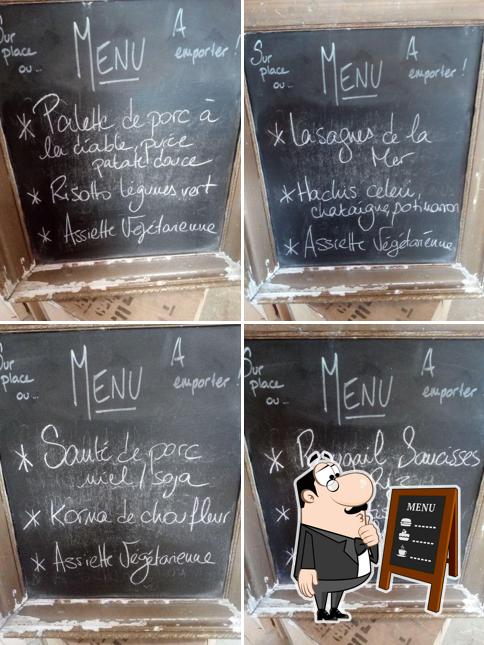 Sur
place
ou...
MENU
A
emporter!
* Palette de porc à
la diable, purée
patate douce
* Risotto légumes vert
* Assiette Végétarienne
Sur
place
ou...
MENU
A
emporter!
* Lasagnes de la
Mer
* Hachis céleri,
chataigne, potimaron
* Assiette Végétarienne
Sur
place
ou...
MENU
A
emporter!
* Sauté de porc
miel / soja
* Korma de choufleur
* Assiette Végétarienne
Sur
place
ou...
MENU
A
emporter!
* Rougail Saucisses
Riz
MENU